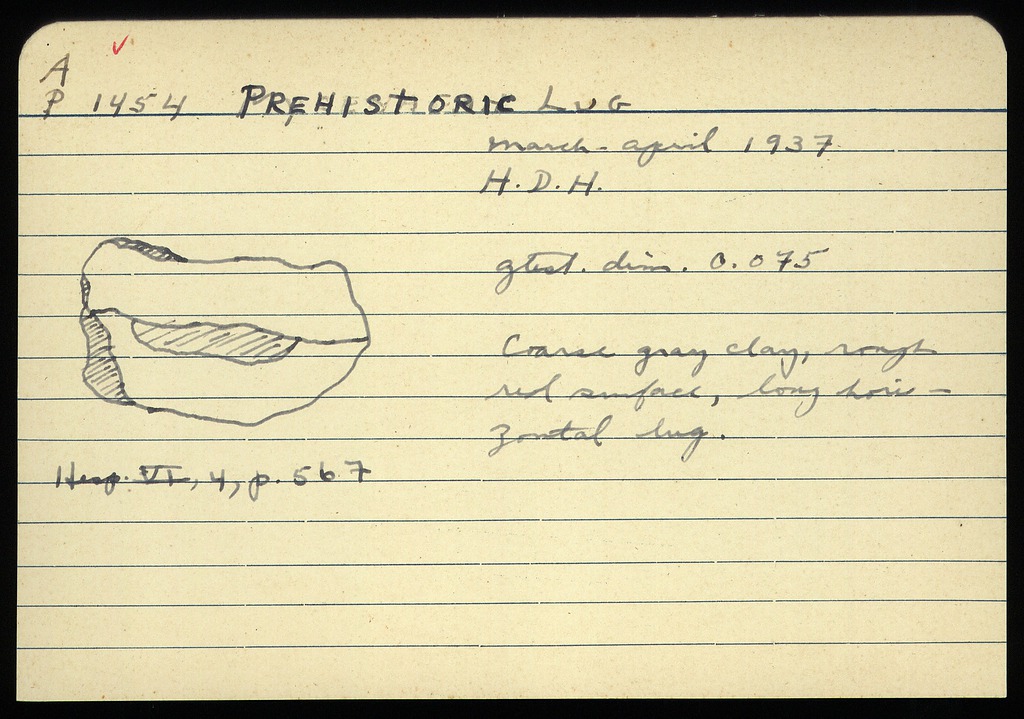 A
P 1454 PREHISTORIC LUG
march-april 1937
H.D.H.
gtest. dim. 0.075
Coarse gray clay, rough
red surface, long hori-
zontal lug.
Hesp. VI, 4, p. 567